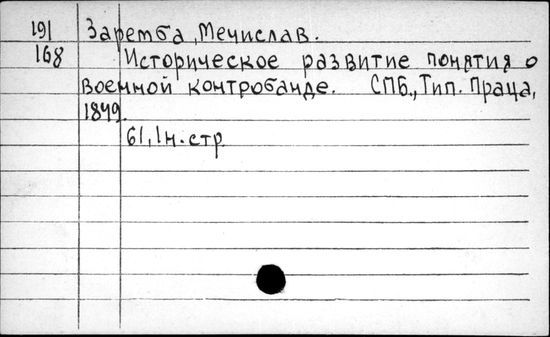 191 Заремба, Мечислав.
168 Историческое развитие понятия о
военной контробанде. СПБ., Тип. Праца,
1849.
61, 1н. стр.